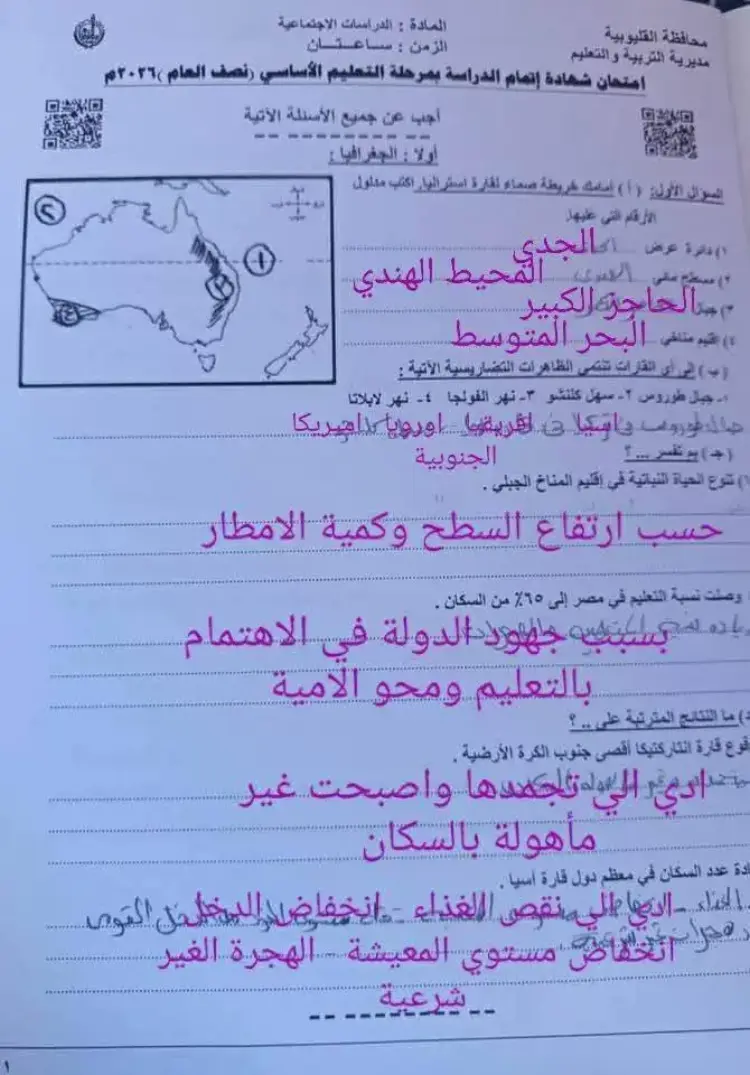 محافظة القليوبية
مديرية التربية والتعليم
المادة : الدراسات الاجتماعية
الزمن : ساعتان
امتحان شهادة إتمام الدراسة بمرحلة التعليم الأساسي (نصف العام) ٢٠٢٦م
أجب عن جميع الأسئلة الآتية
أولا : الجغرافيا :
السوال الأول: (أ) أمامك خريطة صماء لقارة استراليا, اكتب مدلول
الأرقام التي عليها.
١) دائرة عرض الجدي
٢) مسطح مائي المحيط الهندي
٣) جبال الحاجز الكبير
٤) إقليم مناخي البحر المتوسط
٢
١
٣
(ب) إلى أي القارات تنتمي الظاهرات التضاريسية الآتية :
١- جبال طوروس ٢- سهل كلنشو ٣- نهر الفولجا ٤- نهر لابلاتا
اسيا افريقيا اوروبا امريكا
الجنوبية
(جـ) بم تفسر ... ؟
١) تنوع الحياة النباتية في إقليم المناخ الجبلي .
حسب ارتفاع السطح وكمية الامطار
وصلت نسبة التعليم في مصر إلى ٦٥٪ من السكان .
بسبب جهود الدولة في الاهتمام
بالتعليم ومحو الامية
د) ما النتائج المترتبة على .. ؟
قوع قارة انتاركتيكا أقصى جنوب الكرة الأرضية .
ادي الي تجمدها واصبحت غير
مأهولة بالسكان
ادة عدد السكان في معظم دول قارة آسيا .
ادي الي نقص الغذاء - انخفاض الدخل
انخفاض مستوي المعيشة - الهجرة الغير
شرعية
١